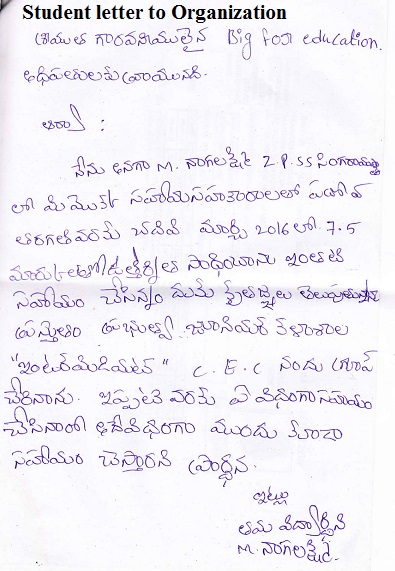 Student letter to Organization
శ్రీయుత గౌరవనీయులైన Big for education.
అధిపతులకు వ్రాయునది.
ఆర్యా :
నేను అనగా M. నాగలక్ష్మి Z.P.SS
లో మీ యొక్క సహాయసహకారాలతో పదోవ
తరగతి వరకు చదివి మార్చి 2016 లో. 7.5
మార్కులతో ఉత్తీర్ణత సాధించాను ఇంతటి
సహాయం చేసినందుకు కృతజ్ఞతలు తెలుపుతున్నాను
ప్రస్తుతం ప్రభుత్వ జూనియర్ కళాశాల
"ఇంటర్మీడియట్" C.E.C నందు గ్రూప్
చేరినాను. ఇప్పటి వరకు ఏ విధంగా సహాయం
చేసినారో అదేవిధంగా ముందు కూడా
సహాయం చేస్తారని ప్రార్ధన.
ఇట్లు
తమ విద్యార్థిని
M. నాగలక్ష్మి.